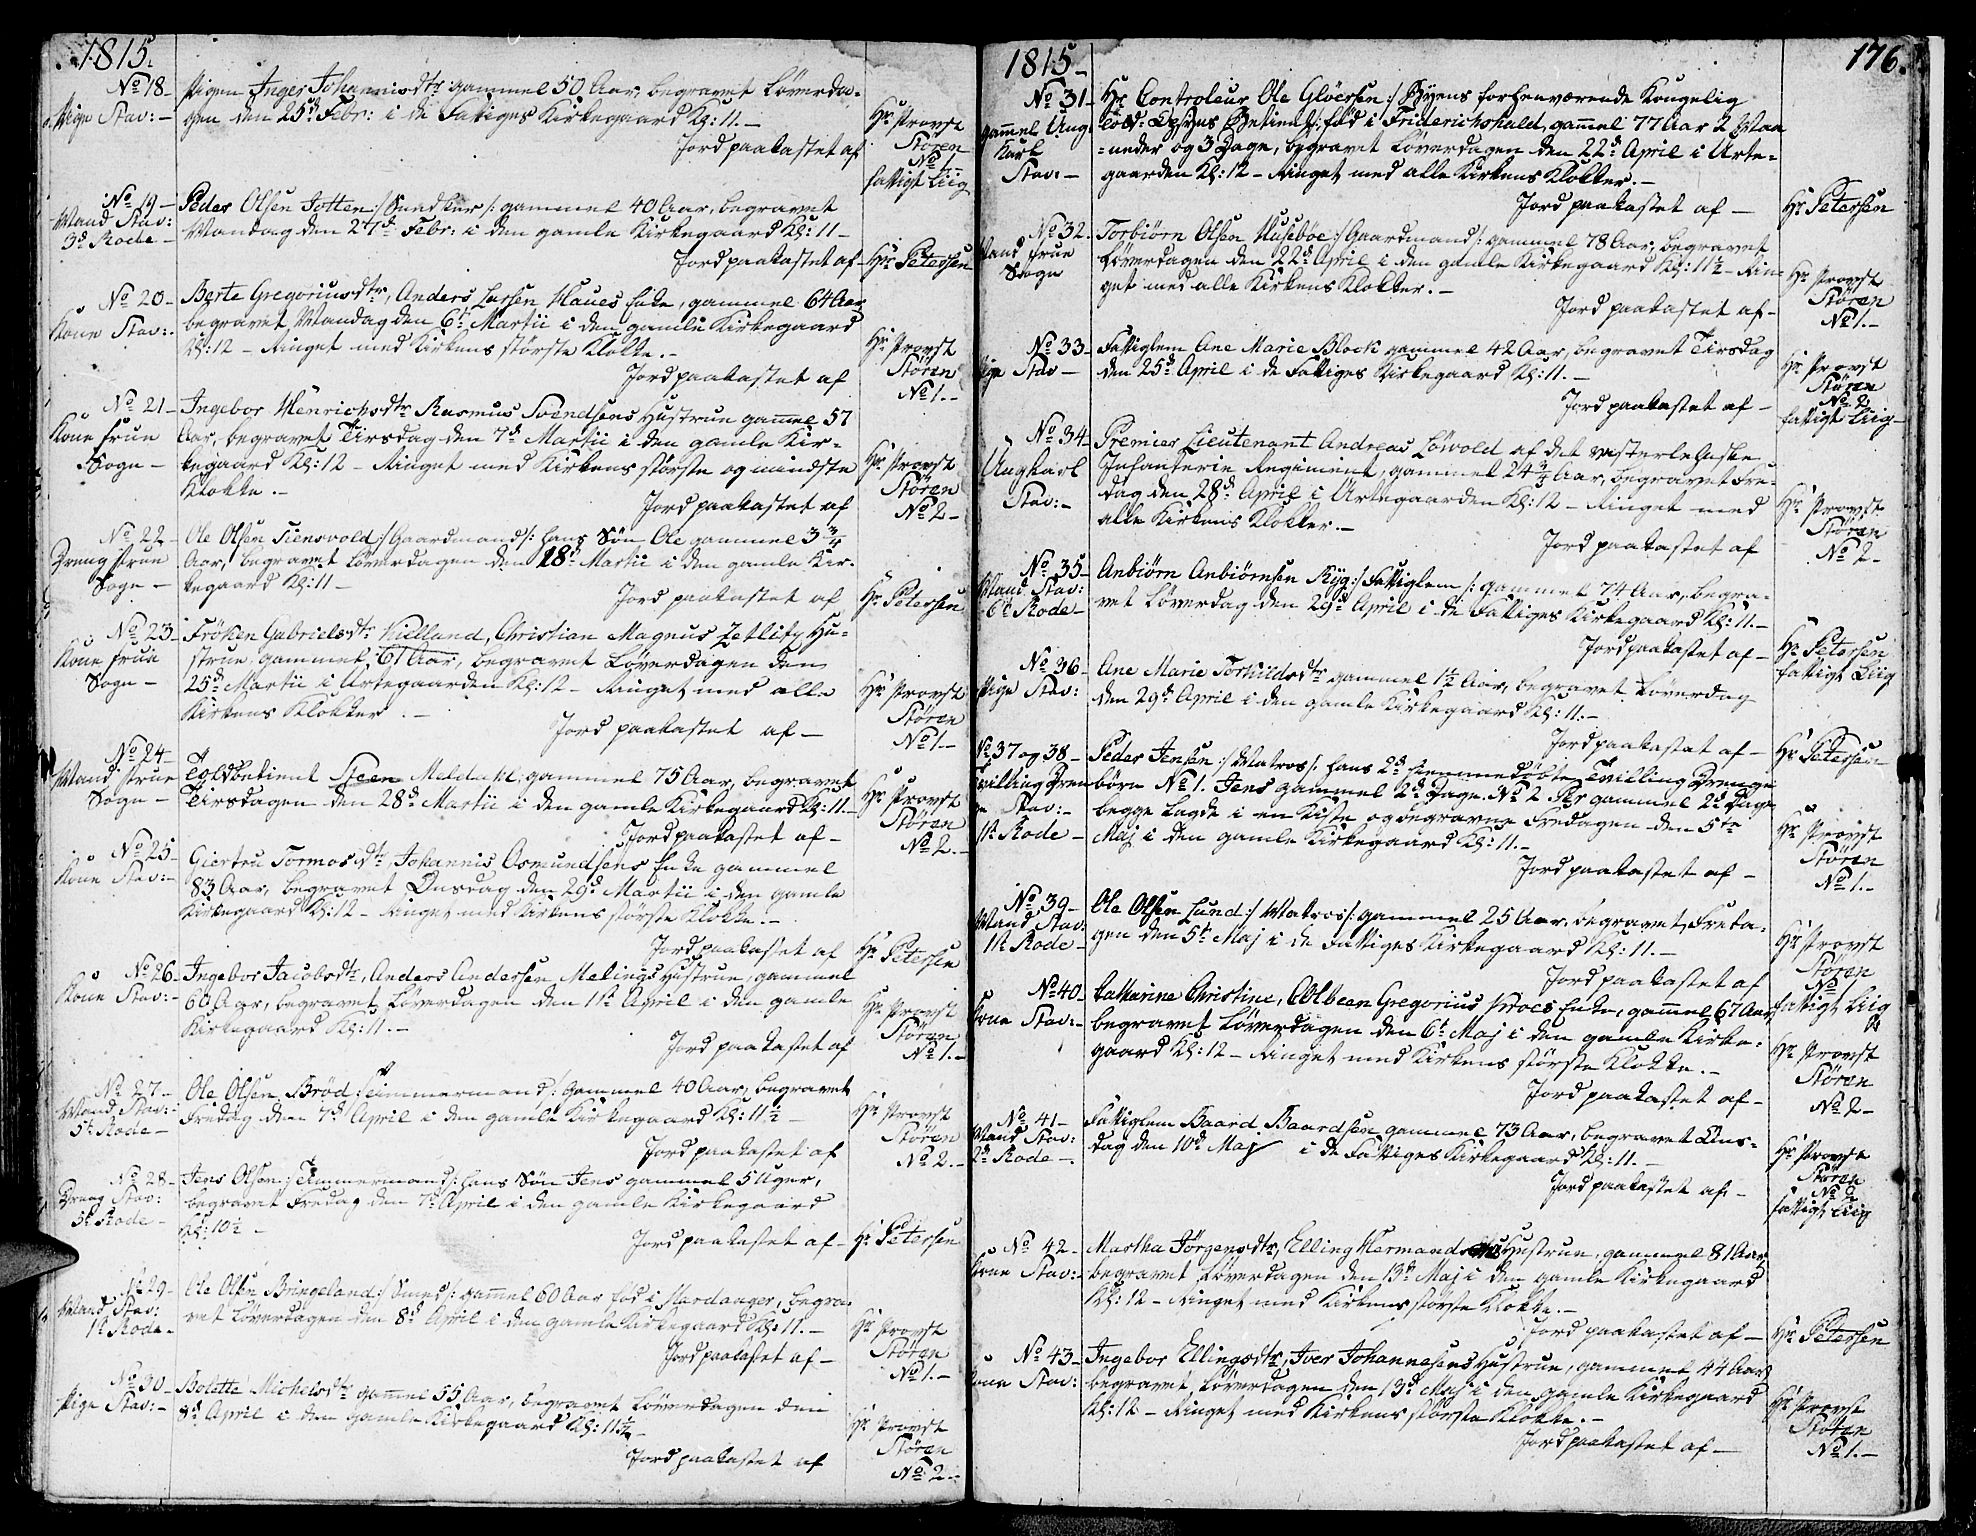 1815.
No 18 - Pigen Inger Johannisdtr gammel 50 Aar, begravet Løverda-
Pige Stav: - gen den 25d Febr: i de Fattiges Kirkegaard Kl: 11. -
Jord paakastet af Hr Provst
Støren
No 1.
fattigt Liig
No 19 - Peder Olsen Jotten :/ Snedker /: gammel 40 Aar, begravet
Mand Stav: Mandag den 27d Febr: i den gamle Kirkegaard Kl: 11 -
3d Rode -
Jord paakastet af - Hr Petersen
No 20 - Berte Gregoriusdtr, Anders Larsen Haues Enke, gammel 64 Aar
Kone Stav: begravet Mandag den 6t Martii i den gamle Kirkegaard
Kl: 12 - Ringet med Kirkens største Klokke. -
Jord paakastet af Hr Provst
Støren
No 1. -
No 21 - Ingebor Henrichsdtr Rasmus Svendsens Hustrue gammel 57
Kone frue Aar, begravet Tirsdag den 7d Martii i den gamle Kir-
Sogn - kegaard Kl: 12 - Ringet med Kirkens største og mindste
Klokke. -
Jord paakastet af Hr Provst
Støren
No 2 -
No 22 - Ole Olsen Tiensvold :/ Gaardmand /: hans Søn Ole gammel 3 3/4
Dreng frue Aar, begravet Løverdagen den 18d Martii i den gamle Kir-
Sogn - kegaard Kl: 11 -
Jord paakastet af Hr Petersen
No 23 - Frøken Gabrielsdtr Kielland, Christian Magnus Zetlitz Hu-
Kone frue strue, gammel 61 Aar, begravet Løverdagen den
Sogn - 25d Martii i Urtegaarden Kl: 12 - Ringet med alle
Kirkens Klokker. -
Jord paakastet af - Hr Provst
Støren
No 1. -
No 24 -
Mand frue Toldbetient Steen Meldahl, gammel 75 Aar, begravet
Sogn - Tirsdagen den 28d Martii i den gamle Kirkegaard Kl: 11 -
Jord paakastet af - Hr Provst
Støren
No 2. -
No 25 - Giertru Tormosdtr Johannis Osmundsens Enke gammel
Kone Stav: - 83 Aar, begravet Onsdag den 29d Martii i den gamle
Kirkegaard Kl: 12 - Ringet med Kirkens største Klokke. -
Jord paakastet af Hr Petersen
No 26 - Ingebor Jacobsdtr, Anders Andersen Melings Hustrue, gammel
Kone Stav: - 60 Aar, begravet Løverdagen den 1st April i den gamle
Kirkegaard Kl: 11. -
Jord paakastet af Hr Provst
Støren
No 1. -
No 27 - Ole Olsen Brød :/ Timmermand /: gammel 40 Aar, begravet
Mand Stav: Fredag den 7d April i den gamle Kirkegaard Kl: 11 1/2 -
5t Rode -
Jord paakastet af Hr Provst
Støren
No 2. -
No 28 - Jens Olsen :/ Timmermand /: hans Søn Jens gammel 5 Uger,
Dreng Stav: begravet Fredag den 7d April i den gamle Kirkegaard
5t Rode - Kl: 10 1/2 -
Jord paakastet af - Hr Petersen
No 29 - Ole Olsen Bringeland :/ Smed /: gammel 60 Aar fød i Hardanger, begra-
Mand Stav: vet Løverdagen den 8d April i den gamle Kirkegaard Kl: 11. -
1st Rode -
Jord paakastet af - Hr Provst
Støren
No 1. -
No 30 - Bolette Michelsdtr gammel 55 Aar, begravet Løverdagen den
Pige Stav: - 8d April i den gamle Kirkegaard Kl: 11 1/2 -
Jord paakastet af Hr Provst
Støren
No 2 -
1815 - 176.
No 31 - Hr Controleur Ole Gløersen :/ Byens forhenværende Kongelig
gammel Ung- Told-Opsyns Betient /: fød i Friderichshald, gammel 77 Aar 2 Maa
karl neder og 3 Dage, begravet Løverdagen den 22d April i Urte-
Stav: - gaarden Kl: 12 - Ringet med alle Kirkens Klokker. -
Jord paakastet af - Hr Petersen
No 32. Torbiørn Olsen Husebøe :/ Gaardmand /: gammel 78 Aar, begravet
Mand frue Løverdagen den 22d April i den gamle Kirkegaard Kl: 11 1/2 - Rin-
Sogn get med alle Kirkens Klokker. -
Jord paakastet af - Hr Provst
Støren
No 1. -
No 33 - Fattiglem Ane Marie Block gammel 42 Aar, begravet Tirsdag
Pige Stav - den 25d April i de Fattiges Kirkegaard Kl: 11. -
Jord paakastet af - Hr Provst
Støren
No 2
fattigt Liig -
No 34 - Premier Lieutenant Andreas Løvold af det Vesterlehnske
Ungkarl Infanterie Regiment, gammel 24 3/4 Aar, begravet Fre-
Stav: - dag den 28d April i Urtegaarden Kl: 12 - Ringet med
alle Kirkens Klokker. -
Jord paakastet af Hr Provst
Støren
No 2 -
No 35 - Anbiørn Anbiørnsen Ryg :/ Fattiglem /: gammel 74 Aar, begra-
Mand Stav: vet Løverdag den 29d April i de Fattiges Kirkegaard Kl: 11. -
6t Rode -
Jord paakastet af - Hr Petersen
fattigt Liig
No 36 - Ane Marie Torkildsdtr gammel 1 1/2 Aar, begravet Løverdag
Pige Stav: den 29d April i den gamle Kirkegaard Kl: 11. -
Jord paakastet af - Hr Petersen
No 37 og 38 - Peder Jensen :/ Matros /: hans 2d hiemmedøbte Tvilling Drenge
Tvilling Dren børn No 1. Jens gammel 2d Dage. No 2 Per gammel 2d Dage,
ge Stav: - begge lagde i en Kiste og begravne Fredagen den 5te
1st Rode - Maj i den gamle Kirkegaard Kl: 11. -
Jord paakastet af - Hr Provst
Støren
No 1. -
No 39 - Ole Olsen Lund :/ Matros /: gammel 25 Aar, begravet Freda-
Mand Stav: gen den 5t Maj i de Fattiges Kirkegaard Kl: 11. -
1st Rode -
Jord paakastet af Hr Provst
Støren
No 1
fattigt Liig
No 40 - Catharine Christine, Colbeen Gregorius Kroes Enke, gammel 67 Aar,
Kone Stav: - begravet Løverdagen den 6t Maj i den gamle Kirke-
gaard Kl: 12 - Ringet med Kirkens største Klokke. -
Jord paakastet af - Hr Provst
Støren
No 2 -
No 41 - Fattiglem Baard Baardsen gammel 73 Aar, begravet Ons-
Mand Stav: dag den 10d Maj i de Fattiges Kirkegaard Kl: 11. -
2d Rode -
Jord paakastet af - Hr Provst
Støren
No 2
fattigt Liig
No 42 - Martha Jørgensdtr, Elling Hermands Hustrue, gammel 81 Aar,
Kone Stav: - begravet Løverdagen den 13d Maj i den gamle Kirkegaard
Kl: 12 - Ringet med Kirkens største Klokke. -
Jord paakastet af - Hr Petersen
No 43 - Ingebor Ellingsdtr, Iver Johannesens Hustrue, gammel 44 Aar,
Kone Stav: begravet Løverdagen den 13d Maj i den gamle Kirkegaard
Kl: 12 - Ringet med Kirkens største Klokke. -
Jord paakastet af - Hr Provst
Støren
No 1. -